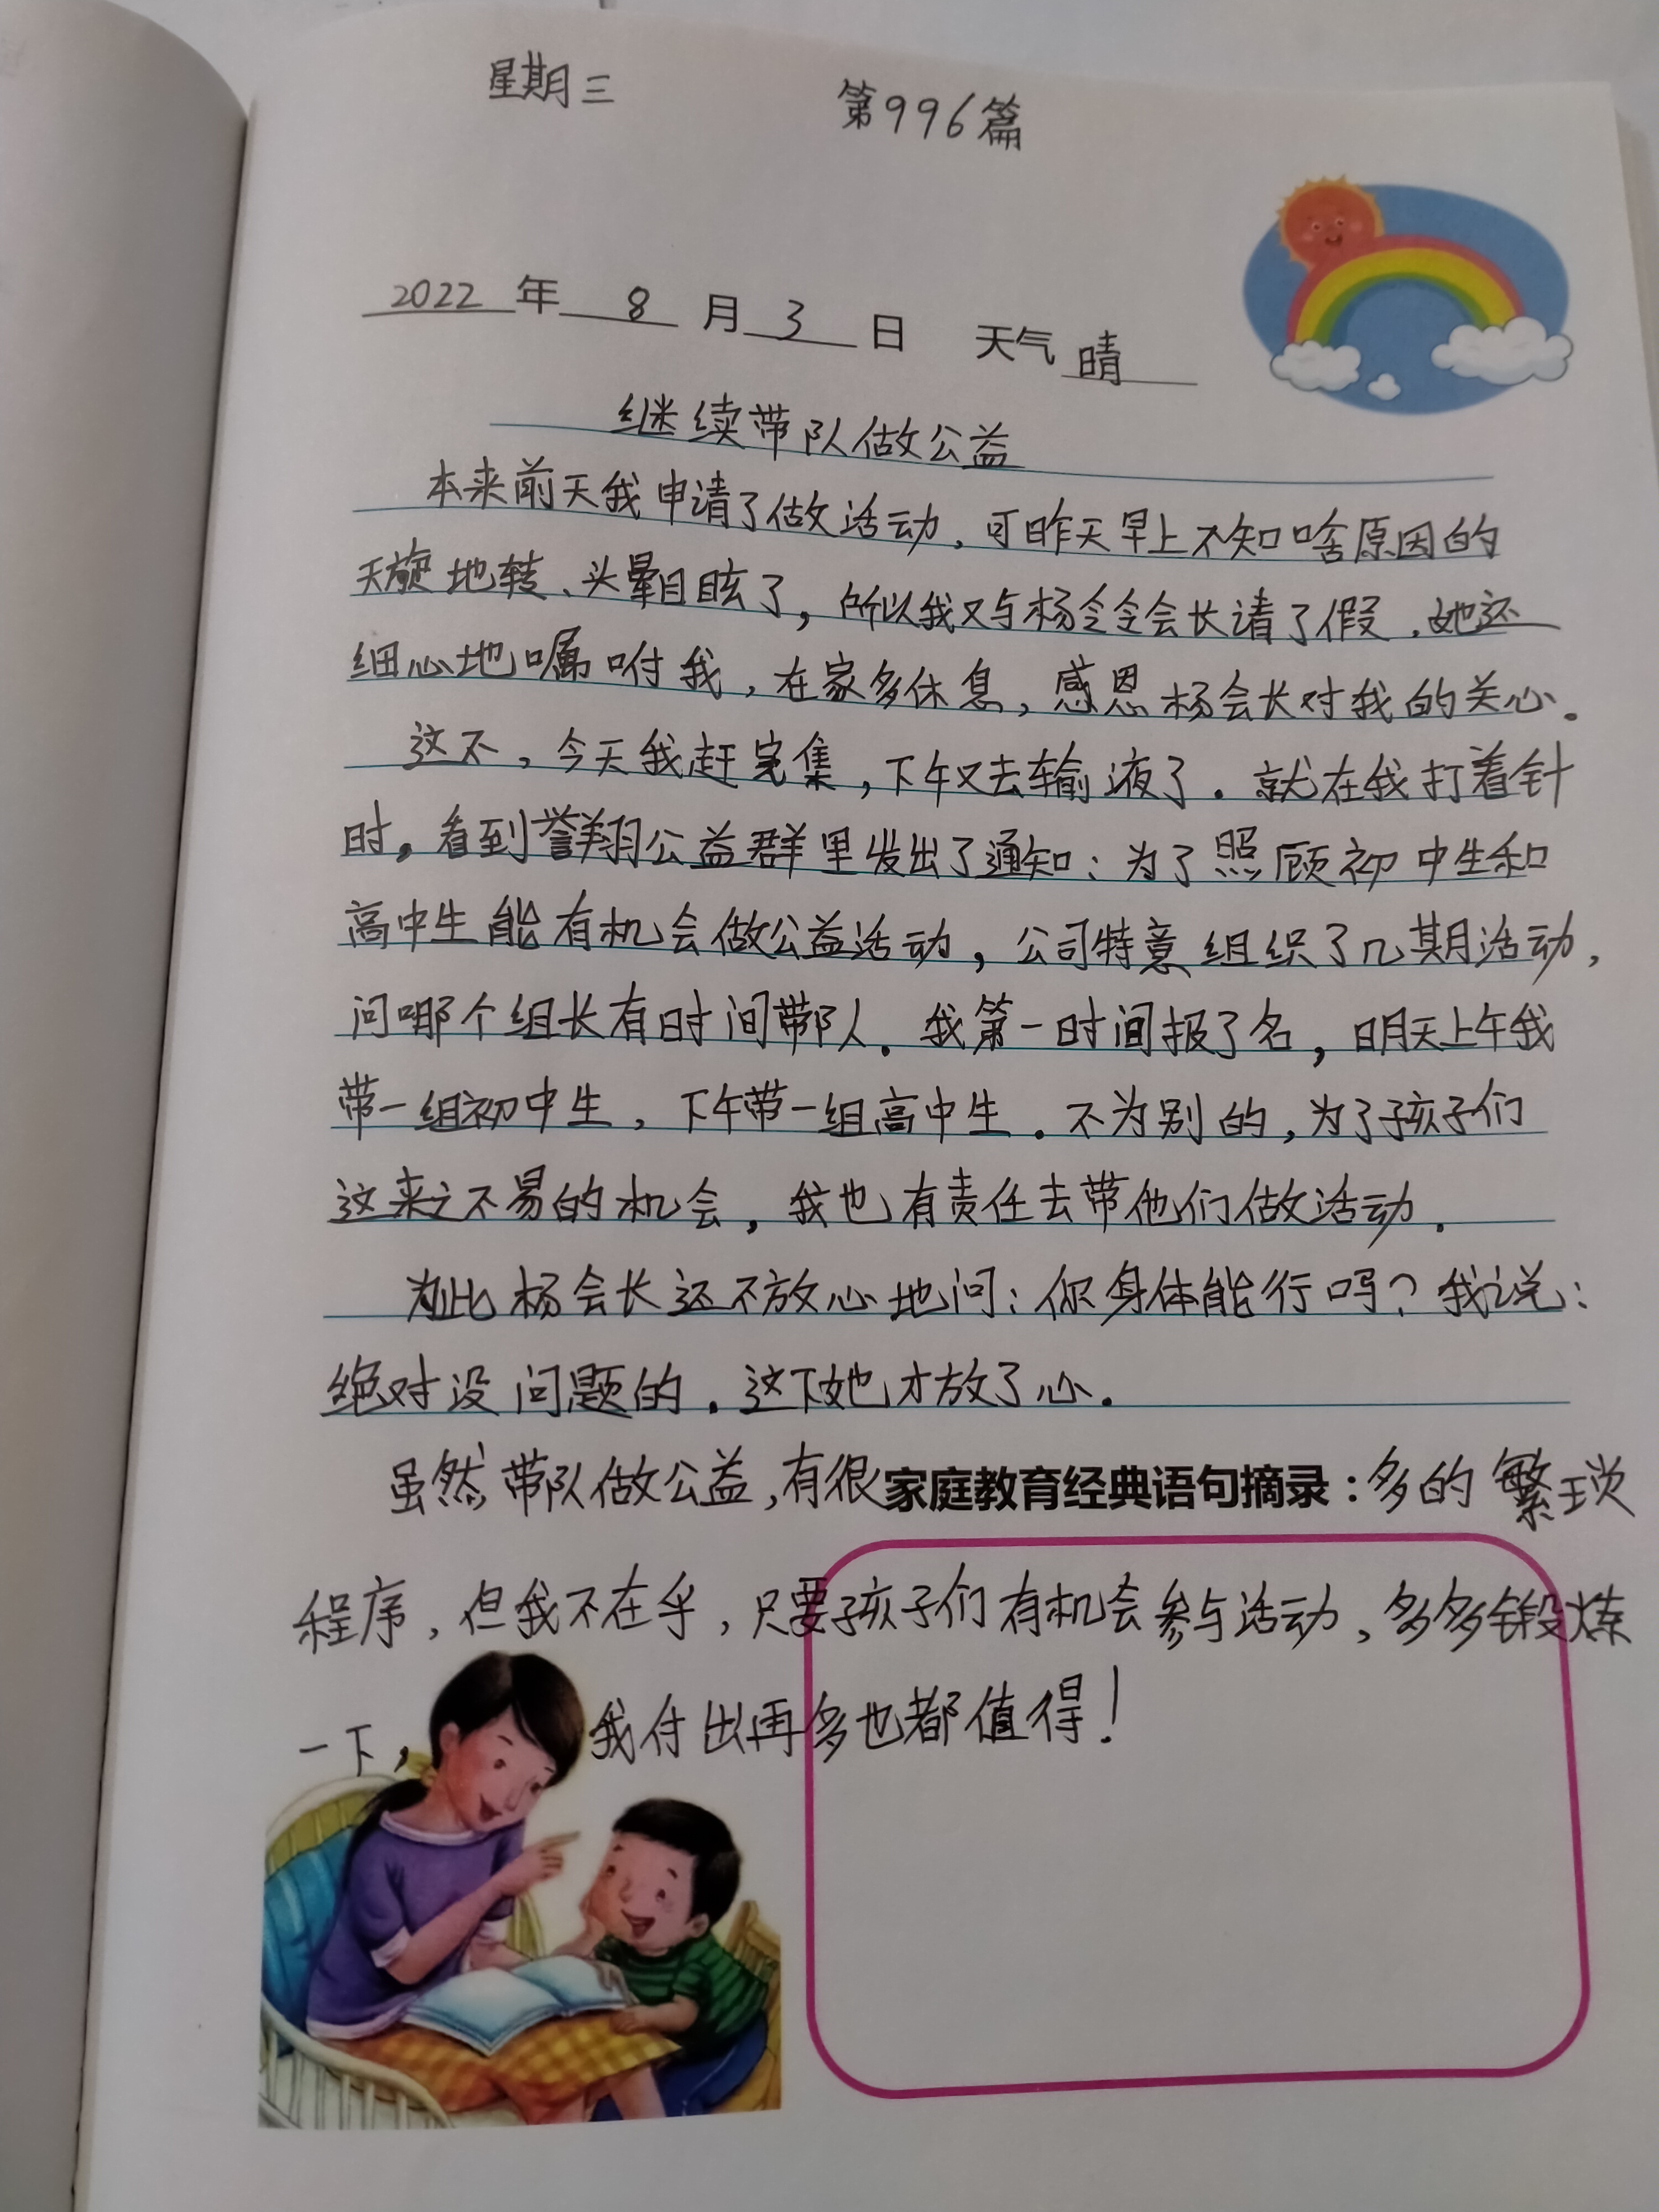 星期三 第996篇
2022年8月3日 天气晴
继续带队做公益
本来前天我申请了做活动，可昨天早上不知啥原因的
天旋地转、头晕目眩了，所以我又与杨令令会长请了假，她还
细心地嘱咐我，在家多休息，感恩杨会长对我的关心。
这不，今天我赶完集，下午又去输液了。就在我打着针
时，看到誉翔公益群里发出了通知：为了照顾初中生和
高中生能有机会做公益活动，公司特意组织了几期活动，
问哪个组长有时间带队。我第一时间报了名，明天上午我
带一组初中生，下午带一组高中生。不为别的，为了孩子们
这来之不易的机会，我也有责任去带他们做活动。
为此杨会长还不放心地问：你身体能行吗？我说：
绝对没问题的。这下她才放了心。
虽然带队做公益，有很家庭教育经典语句摘录：多的繁琐
程序，但我不在乎，只要孩子们有机会参与活动，多多锻炼
一下，我付出再多也都值得！